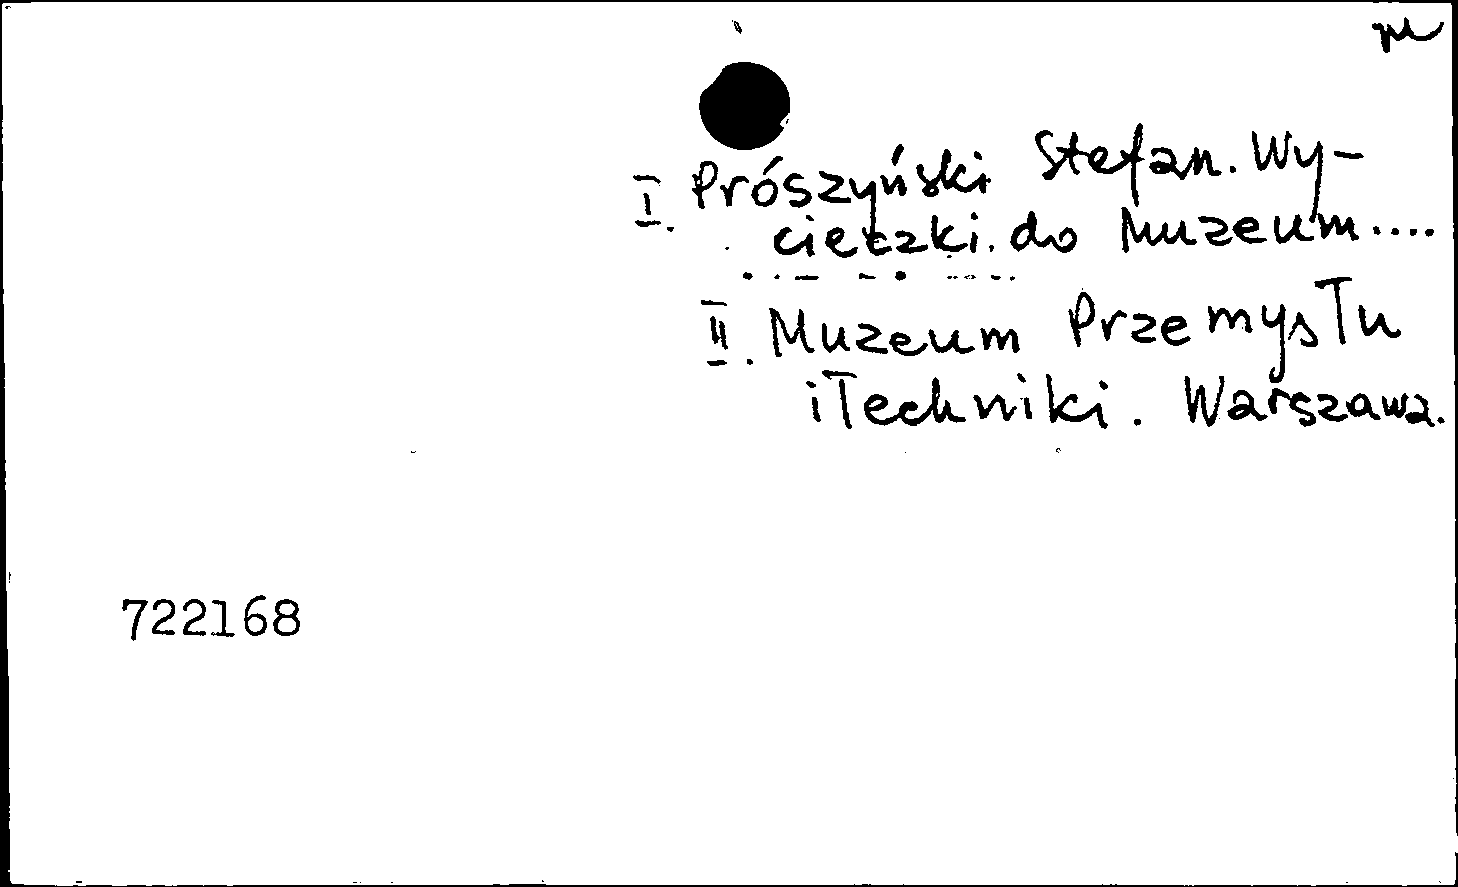 I. Prószyński Stefan. Wy-
cieczki do Muzeum....
II. Muzeum Przemysłu
i Techniki. Warszawa.
722168